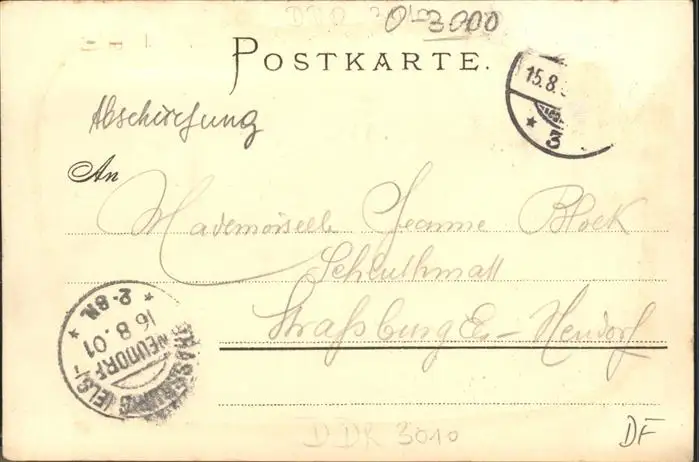 0-3000
POSTKARTE.
15.8.
* 3
Abschirfung
An
Mademoiselle Jeanne Block
Schluthmatt
Straßburg Els-Neudorf
STRASSBURG (ELS)-
NEUDORF
16.8.01
* 2-8N. *
DDR 3010
DF